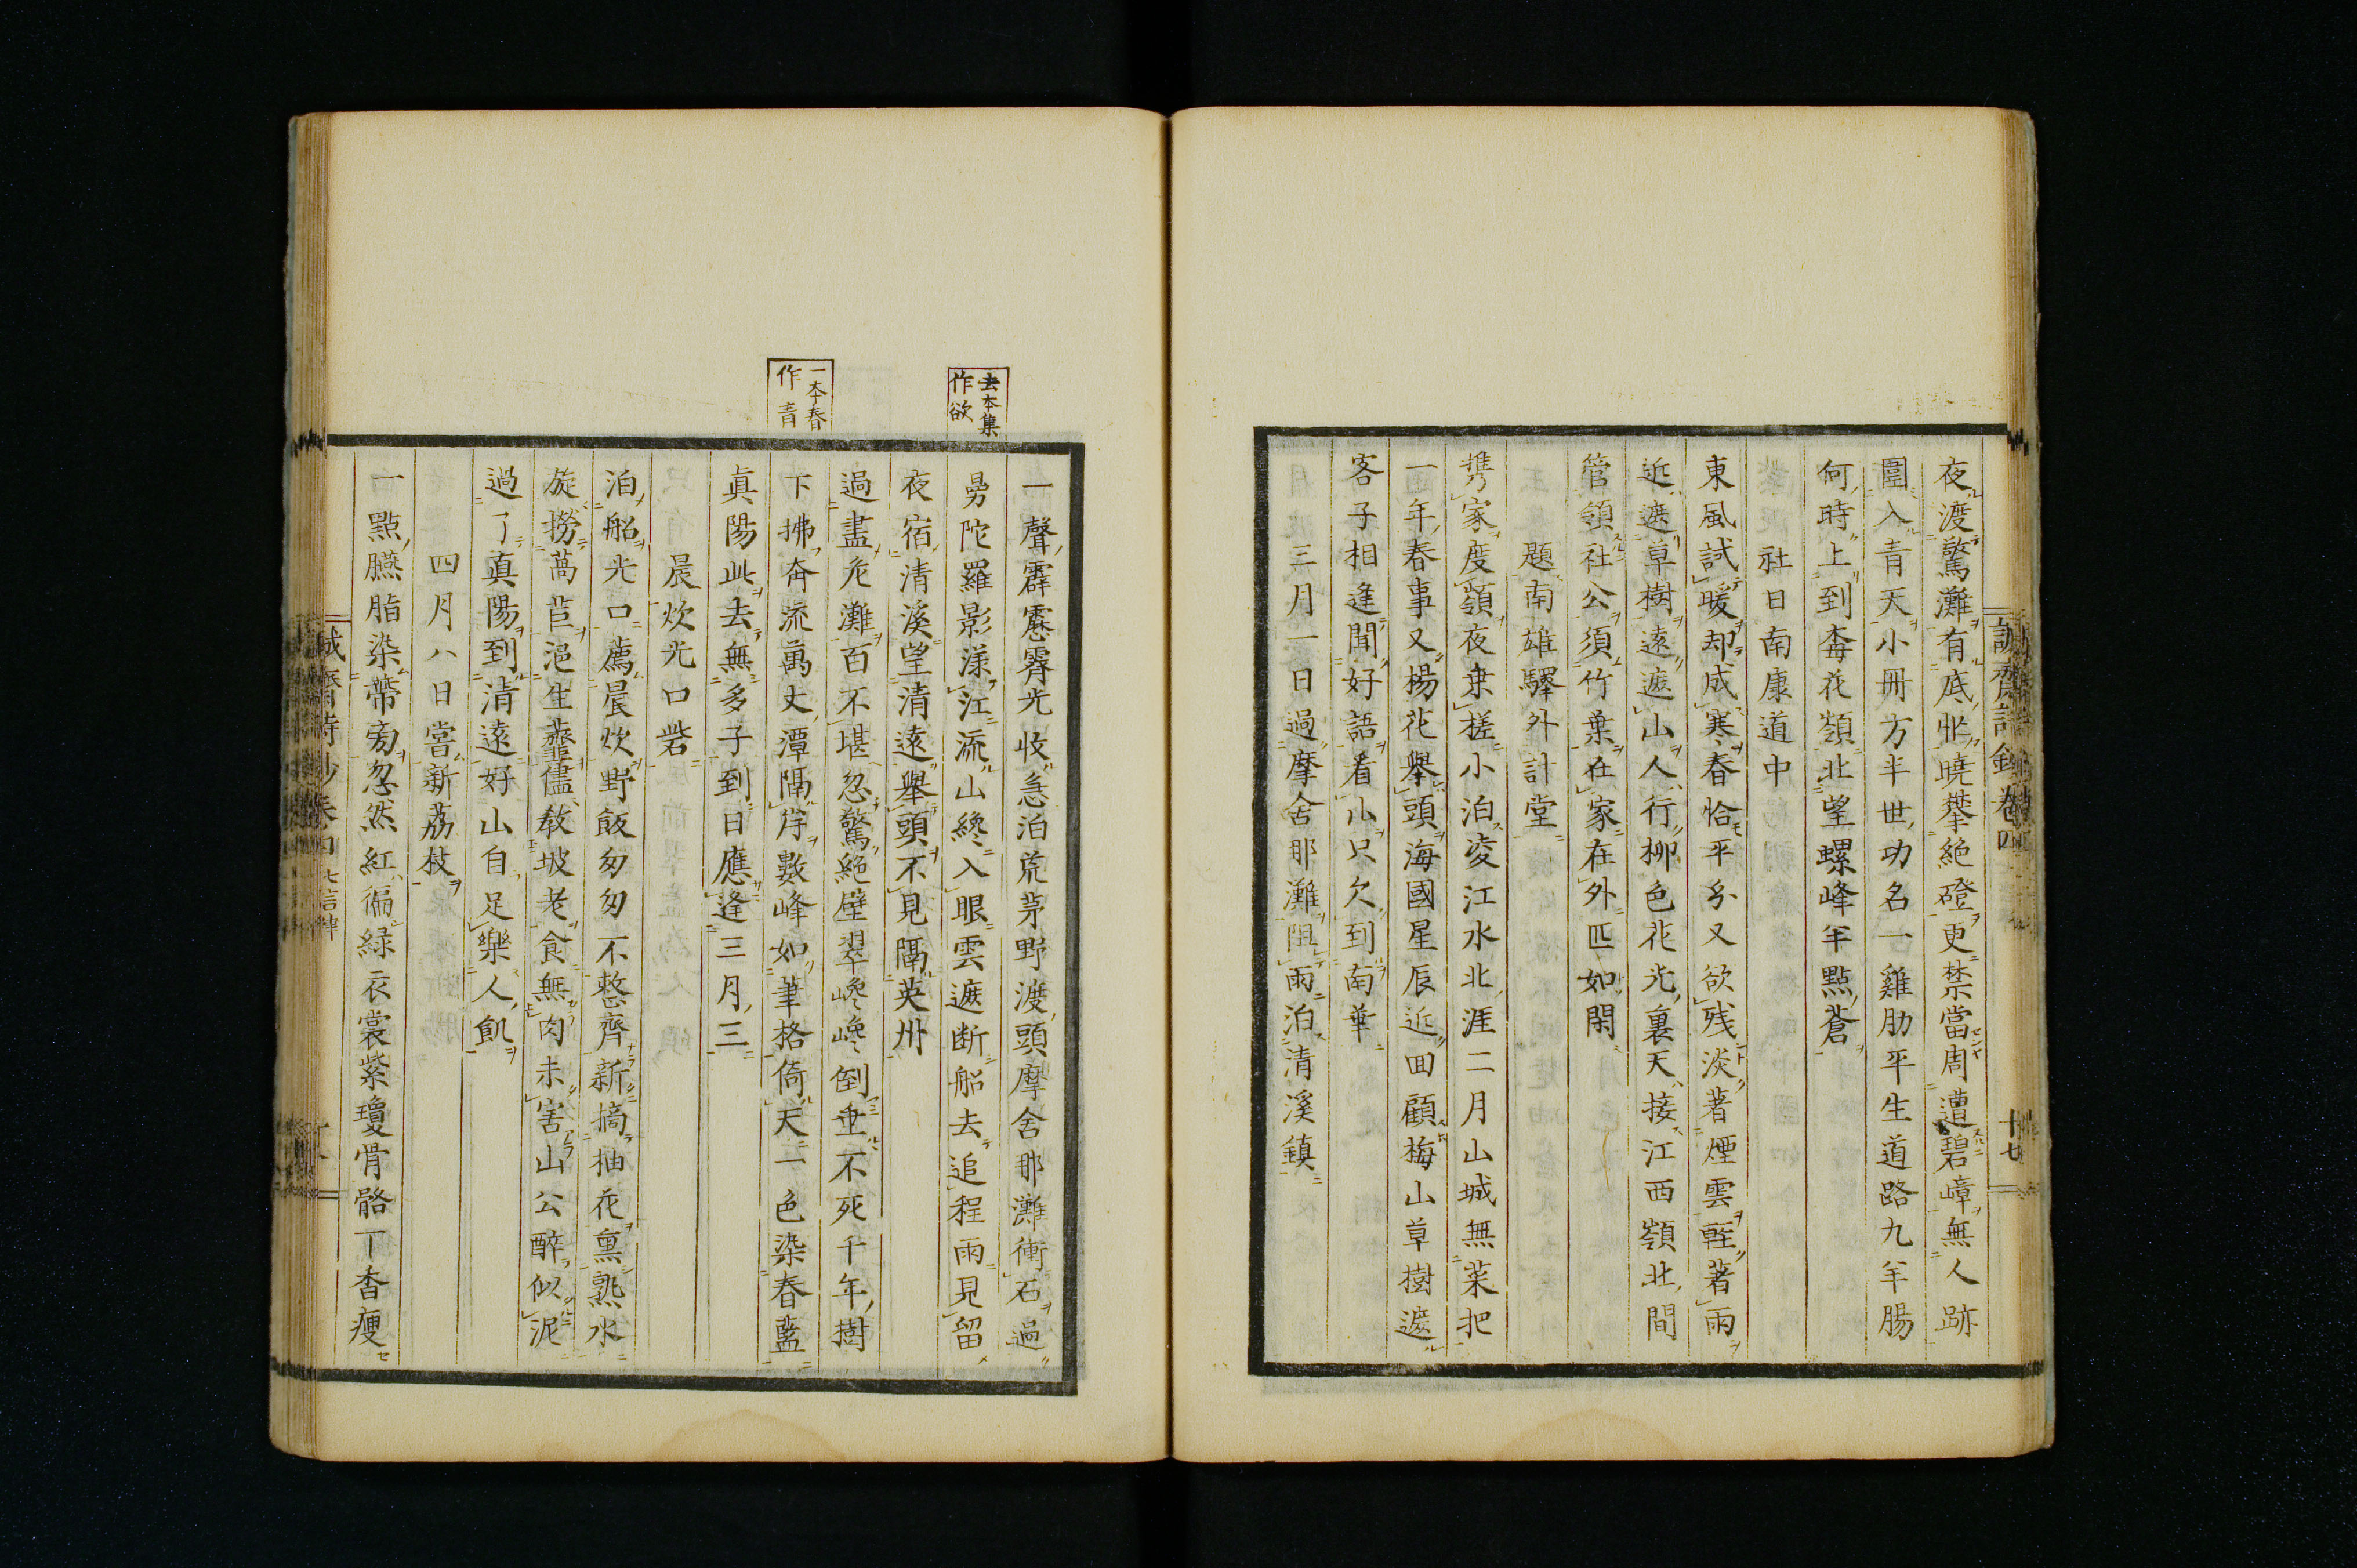 夜渡驚灘有底忙曉攀絶磴更禁當周遭碧嶂無人跡
圍入青天小冊方半世功名一雞肋平生道路九羊腸
何時上到梅花嶺北望螺峰半點蒼
社日南康道中
東風試暖却成寒春恰平分又欲残淡著煙雲輕著雨
近遮草樹遠遮山人行柳色花光裏天接江西嶺北間
管領社公須竹葉在家在外匹如閑
題南雄驛外計堂
携家度嶺夜乗槎小泊凌江水北涯二月山城無菜把
一年春事又楊花舉頭海國星辰近回顧梅山草樹遮
客子相逢聞好語看看只欠到南華
三月一日過摩舍那灘阻雨泊清溪鎮
誠齋詩鈔卷四
十七
去本集
作欲
一本春
作青
一聲霹靂霽光收急泊荒茅野渡頭摩舍那灘衝石過
曼陀羅影漾江流山纔入眼雲遮断船去追程雨見留
夜宿清溪望清遠舉頭不見隔英州
過盡危灘百不堪忽驚絶壁翠巉巉倒垂不死千年樹
下拂奔流萬丈潭隔岸數峰如筆格倚天一色染春藍
眞陽此去無多子到日應逢三月三
晨炊光口砦
泊船光口薦晨炊野飯匆匆不整齊新摘柚花熏熟水
旋撈萵苣浥生虀儘敎坡老食無肉未害山公醉似泥
過了眞陽到清遠好山自足樂人飢
四月八日嘗新荔枝
一點臙脂染蔕旁忽然紅徧緑衣裳紫瓊骨骼丁香痩